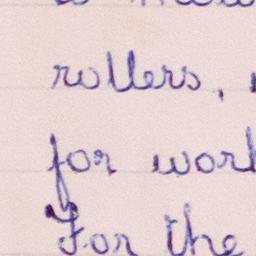 rollers,
for
For the